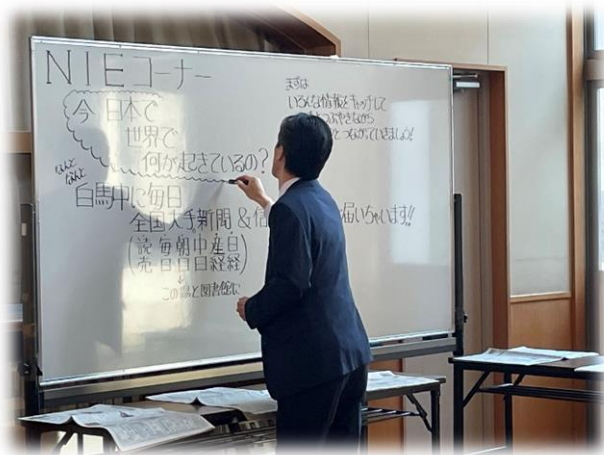 NIEコーナー
今 日本で
世界で
何が起きているの?
なんと
なんと
白馬中に毎日
全国大手新聞&信 届いちゃいます!!
(読 毎 朝 中 産 日)
(売 日 日 日 経 経)
↓
この場と図書館に
まずは
いろんな情報をキャッチして
とつぶやきながら
とつながっていきましょう!